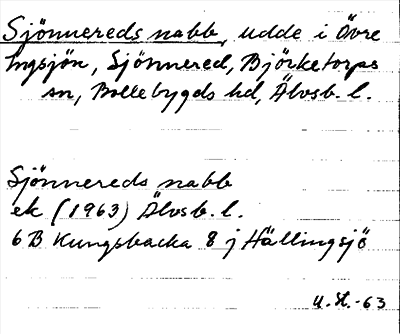 Sjönnereds nabb, udde i Övre
Ingsjön, Sjönnered, Björketorps
sn, Bollebygds hd, Älvsb. l.
Sjönnereds nabb
ek (1963) Älvsb. l.
6 B Kungsbacka 8 j Hällingsjö
U. H. -63